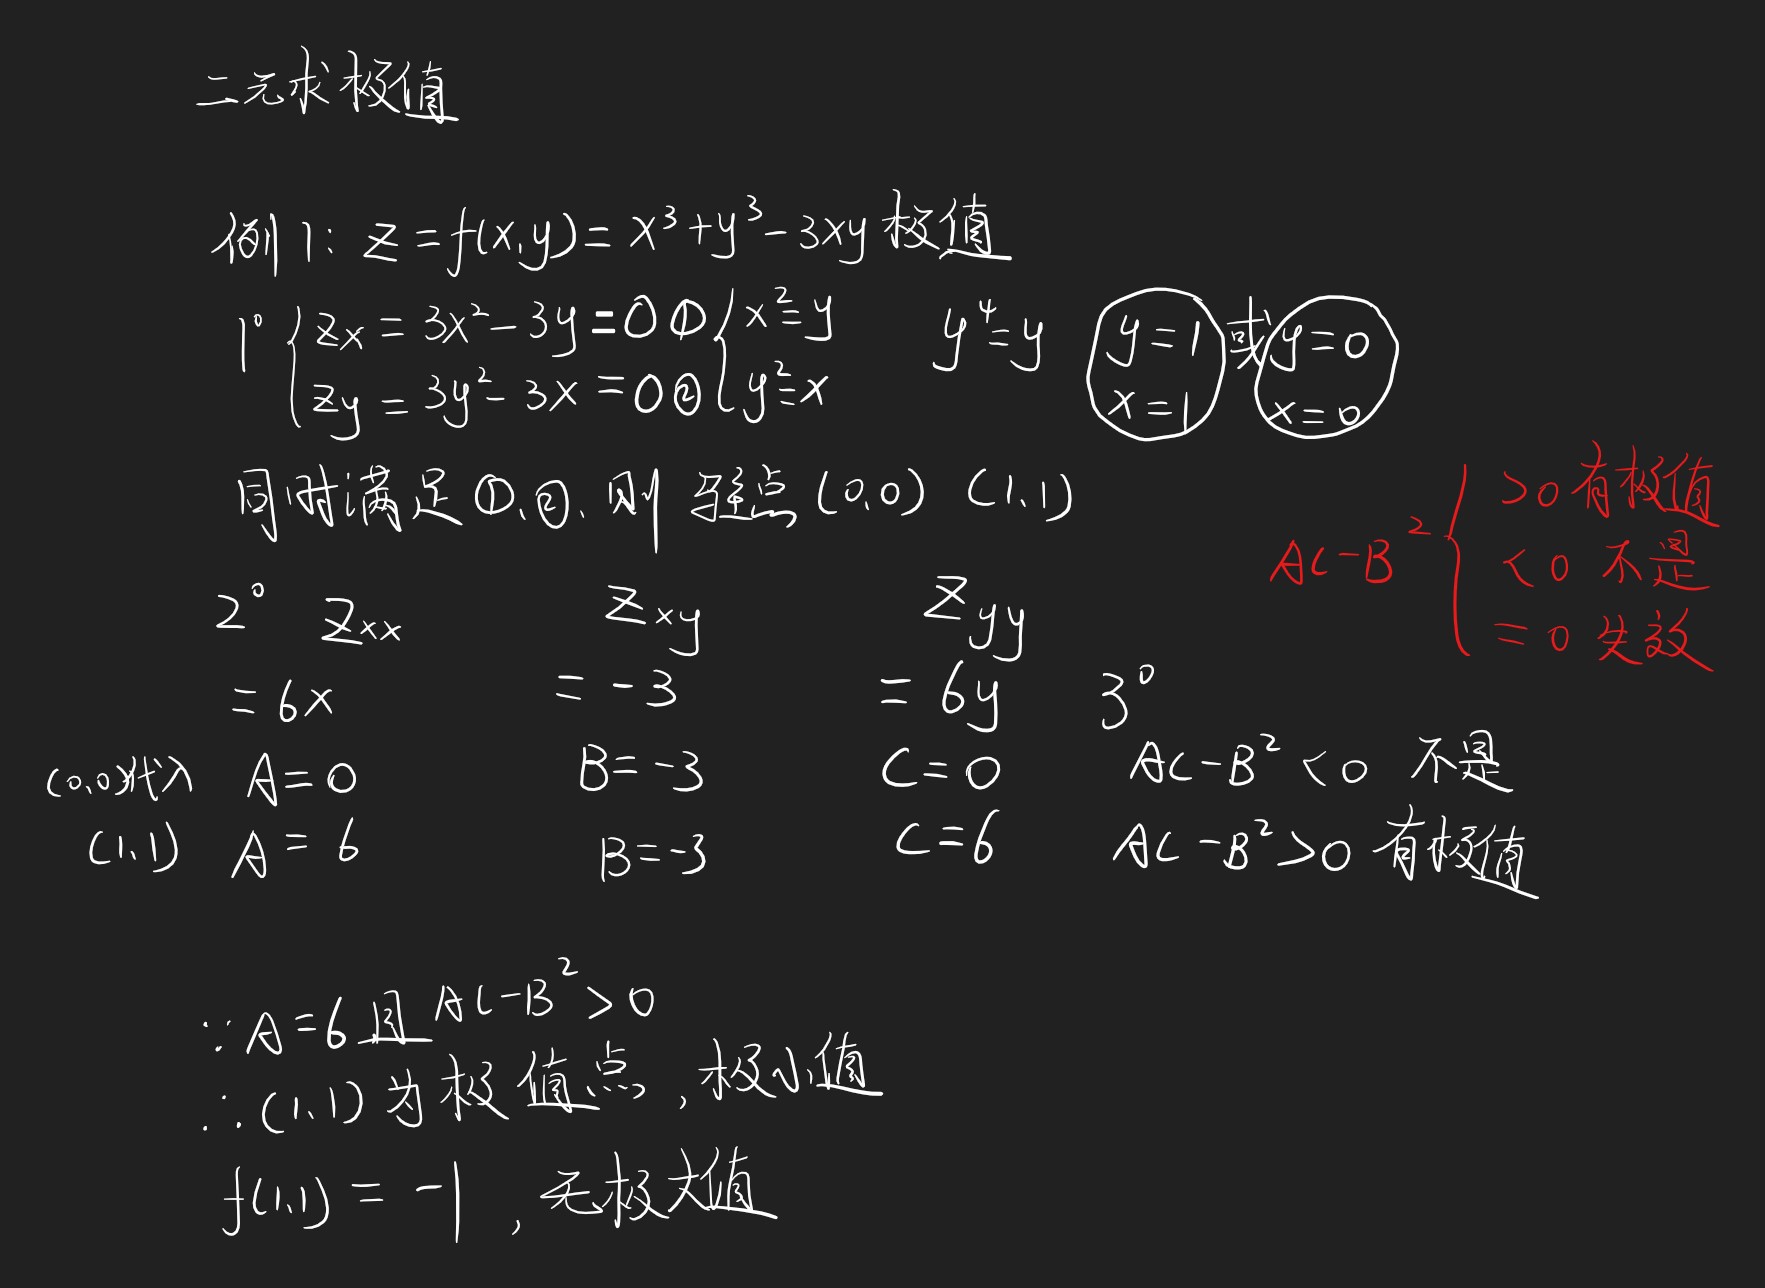 二元求极值
例1: z = f(x,y) = x³+y³-3xy 极值
1° { zx = 3x²-3y = 0 ① { x²=y y⁴=y y=1 或 y=0
zy = 3y²-3x = 0 ② y²=x x=1 x=0
同时满足①、②、则 驻点 (0,0) (1,1)
AC-B² { >0 有极值
<0 不是
=0 失效
2° Zxx Zxy Zyy
= 6x = -3 = 6y 3°
(0,0)代入 A=0 B=-3 C=0 AC-B²<0 不是
(1,1) A=6 B=-3 C=6 AC-B²>0 有极值
∵ A=6 且 AC-B²>0
∴ (1,1) 为极值点, 极小值
f(1,1) = -1, 无极大值